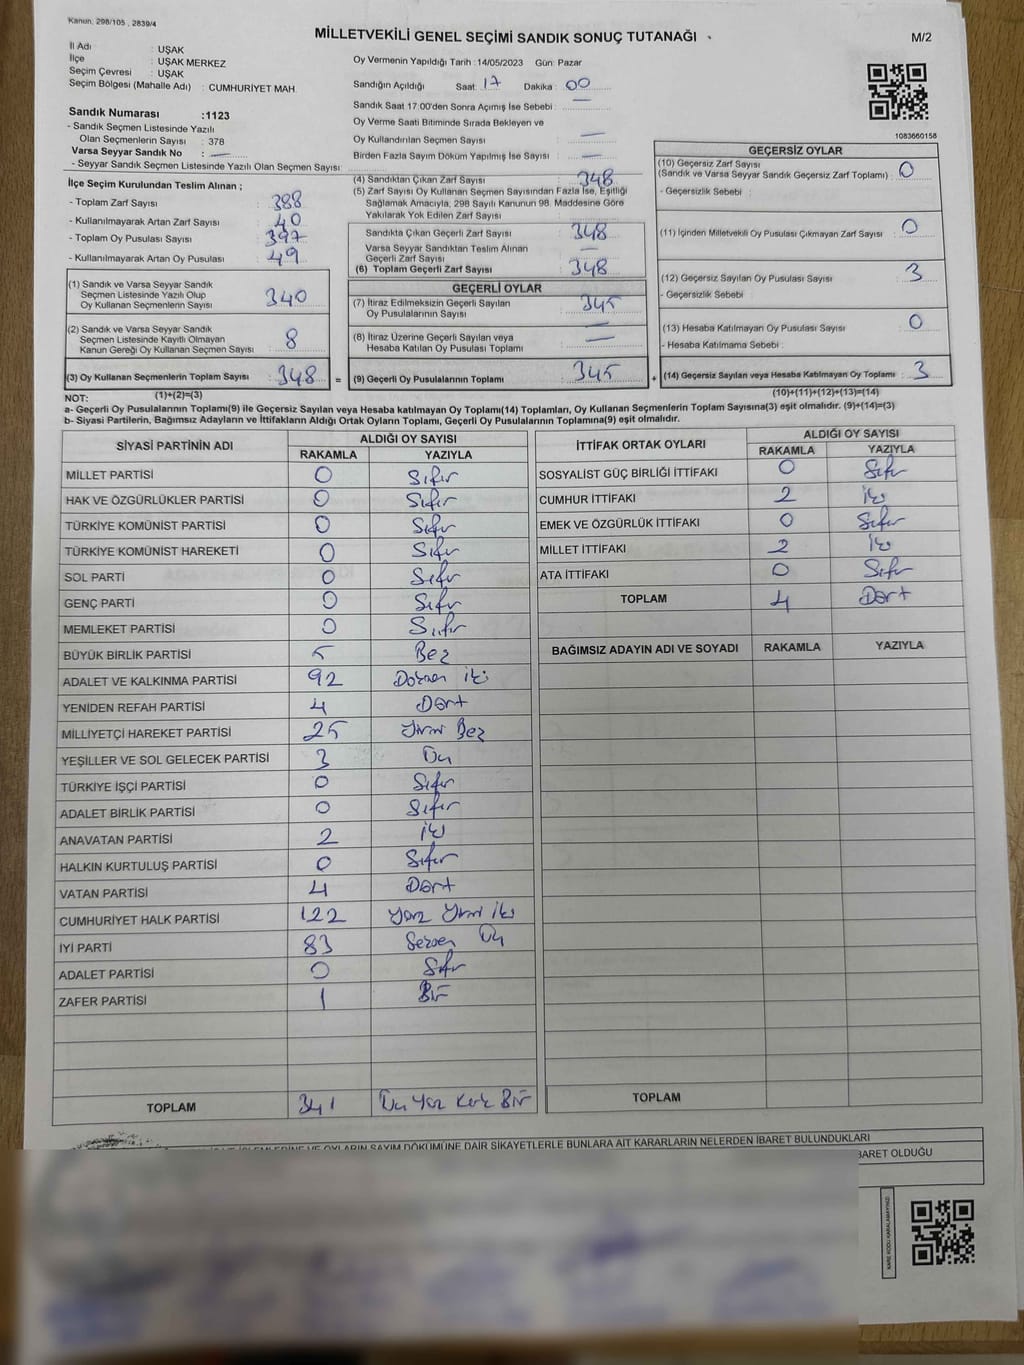 Kanun, 298/105 , 2839/4
MİLLETVEKİLİ GENEL SEÇİMİ SANDIK SONUÇ TUTANAĞI
M/2
İl Adı : UŞAK
İlçe : UŞAK MERKEZ
Seçim Çevresi : UŞAK
Seçim Bölgesi (Mahalle Adı) : CUMHURİYET MAH.
Oy Vermenin Yapıldığı Tarih : 14/05/2023 Gün: Pazar
Sandığın Açıldığı Saat: 17 Dakika : 00
Sandık Saat 17:00'den Sonra Açımış İse Sebebi : —
Oy Verme Saati Bitiminde Sırada Bekleyen ve
Oy Kullandırılan Seçmen Sayısı : —
Birden Fazla Sayım Döküm Yapılmış İse Sayısı : —
1083660158
Sandık Numarası :1123
- Sandık Seçmen Listesinde Yazılı
Olan Seçmenlerin Sayısı : 378
Varsa Seyyar Sandık No : —
- Seyyar Sandık Seçmen Listesinde Yazılı Olan Seçmen Sayısı :
İlçe Seçim Kurulundan Teslim Alınan ;
- Toplam Zarf Sayısı : 388
- Kullanılmayarak Artan Zarf Sayısı : 40
- Toplam Oy Pusulası Sayısı : 397
- Kullanılmayarak Artan Oy Pusulası : 49
(1) Sandık ve Varsa Seyyar Sandık
Seçmen Listesinde Yazılı Olup
Oy Kullanan Seçmenlerin Sayısı : 340
(2) Sandık ve Varsa Seyyar Sandık
Seçmen Listesinde Kayıtlı Olmayan
Kanun Gereği Oy Kullanan Seçmen Sayısı : 8
(3) Oy Kullanan Seçmenlerin Toplam Sayısı : 348 =
(1)+(2)=(3)
(4) Sandıktan Çıkan Zarf Sayısı : 348
(5) Zarf Sayısı Oy Kullanan Seçmen Sayısından Fazla İse, Eşitliği
Sağlamak Amacıyla, 298 Sayılı Kanunun 98. Maddesine Göre
Yakılarak Yok Edilen Zarf Sayısı :
Sandıkta Çıkan Geçerli Zarf Sayısı : 348
Varsa Seyyar Sandıktan Teslim Alınan
Geçerli Zarf Sayısı : —
(6) Toplam Geçerli Zarf Sayısı : 348
GEÇERLİ OYLAR
(7) İtiraz Edilmeksizin Geçerli Sayılan
Oy Pusulalarının Sayısı : 345
—
(8) İtiraz Üzerine Geçerli Sayılan veya
Hesaba Katılan Oy Pusulası Toplamı : —
(9) Geçerli Oy Pusulalarının Toplamı : 345 +
GEÇERSİZ OYLAR
(10) Geçersiz Zarf Sayısı
(Sandık ve Varsa Seyyar Sandık Geçersiz Zarf Toplamı) : 0
- Geçersizlik Sebebi :
(11) İçinden Milletvekili Oy Pusulası Çıkmayan Zarf Sayısı : 0
(12) Geçersiz Sayılan Oy Pusulası Sayısı : 3
- Geçersizlik Sebebi :
(13) Hesaba Katılmayan Oy Pusulası Sayısı : 0
- Hesaba Katılmama Sebebi :
(14) Geçersiz Sayılan veya Hesaba Katılmayan Oy Toplamı : 3
(10)+(11)+(12)+(13)=(14)
NOT:
a- Geçerli Oy Pusulalarının Toplamı(9) ile Geçersiz Sayılan veya Hesaba katılmayan Oy Toplamı(14) Toplamları, Oy Kullanan Seçmenlerin Toplam Sayısına(3) eşit olmalıdır. (9)+(14)=(3)
b- Siyasi Partilerin, Bağımsız Adayların ve İttifakların Aldığı Ortak Oyların Toplamı, Geçerli Oy Pusulalarının Toplamına(9) eşit olmalıdır.
SİYASİ PARTİNİN ADI ALDIĞI OY SAYISI
RAKAMLA YAZIYLA
MİLLET PARTİSİ 0 Sıfır
HAK VE ÖZGÜRLÜKLER PARTİSİ 0 Sıfır
TÜRKİYE KOMÜNİST PARTİSİ 0 Sıfır
TÜRKİYE KOMÜNİST HAREKETİ 0 Sıfır
SOL PARTİ 0 Sıfır
GENÇ PARTİ 0 Sıfır
MEMLEKET PARTİSİ 0 Sıfır
BÜYÜK BİRLİK PARTİSİ 5 Beş
ADALET VE KALKINMA PARTİSİ 92 Doksan iki
YENİDEN REFAH PARTİSİ 4 Dört
MİLLİYETÇİ HAREKET PARTİSİ 25 Yirmi Beş
YEŞİLLER VE SOL GELECEK PARTİSİ 3 Üç
TÜRKİYE İŞÇİ PARTİSİ 0 Sıfır
ADALET BİRLİK PARTİSİ 0 Sıfır
ANAVATAN PARTİSİ 2 İki
HALKIN KURTULUŞ PARTİSİ 0 Sıfır
VATAN PARTİSİ 4 Dört
CUMHURİYET HALK PARTİSİ 122 Yüz Yirmi iki
İYİ PARTİ 83 Seksen Üç
ADALET PARTİSİ 0 Sıfır
ZAFER PARTİSİ 1 Bir
TOPLAM 341 Üç Yüz Kırk Bir
İTTİFAK ORTAK OYLARI ALDIĞI OY SAYISI
RAKAMLA YAZIYLA
SOSYALİST GÜÇ BİRLİĞİ İTTİFAKI 0 Sıfır
CUMHUR İTTİFAKI 2 İki
EMEK VE ÖZGÜRLÜK İTTİFAKI 0 Sıfır
MİLLET İTTİFAKI 2 İki
ATA İTTİFAKI 0 Sıfır
TOPLAM 4 Dört
BAĞIMSIZ ADAYIN ADI VE SOYADI RAKAMLA YAZIYLA
TOPLAM
OYLARIN SAYIM DÖKÜMÜNE DAİR ŞİKAYETLERLE BUNLARA AİT KARARLARIN NELERDEN İBARET BULUNDUKLARI
BARET OLDUĞU
KARE KODU KARALAMAYINIZ!